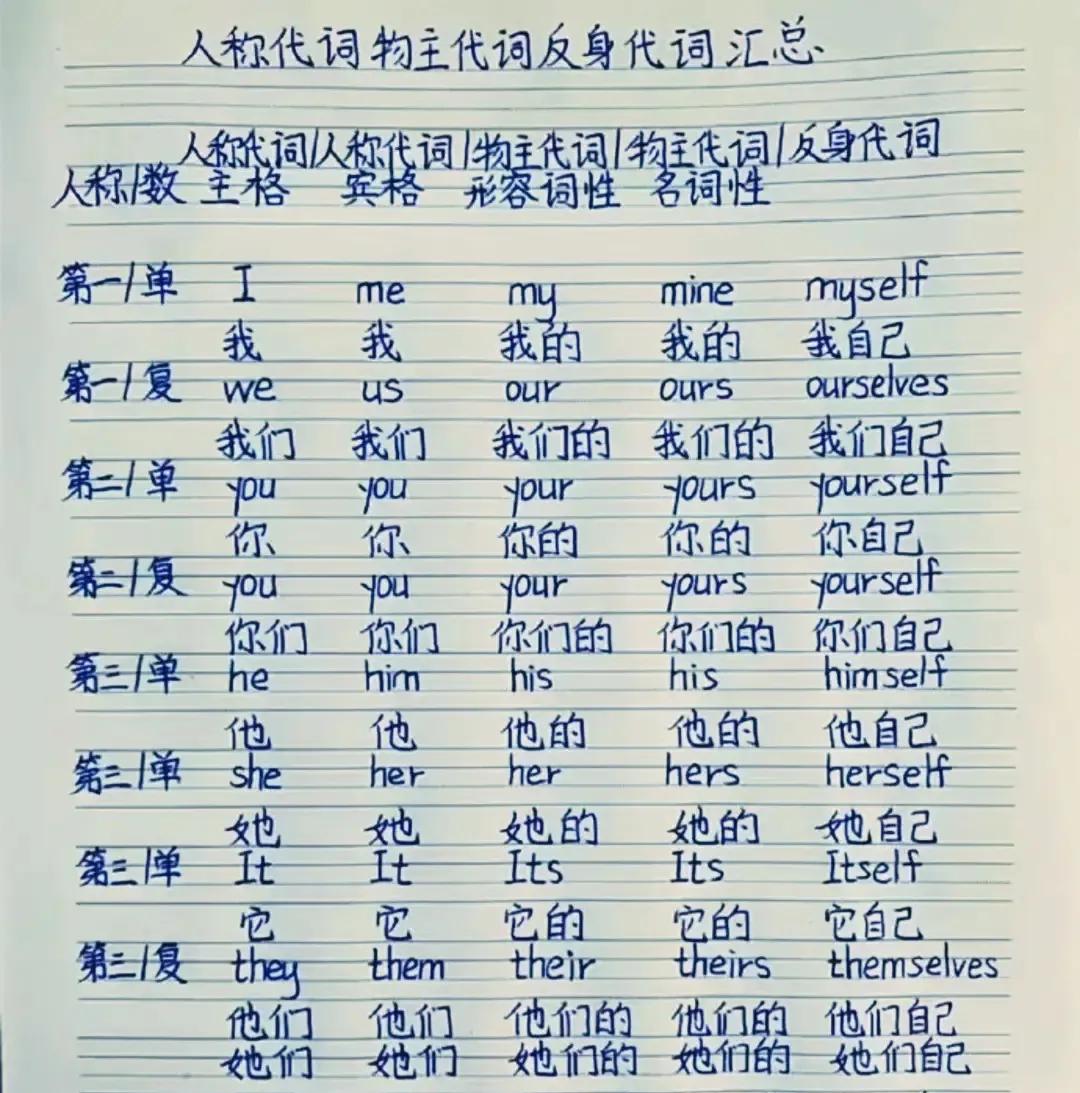 人称代词 物主代词 反身代词 汇总
人称代词/人称代词/物主代词/物主代词/反身代词
人称/数 主格 宾格 形容词性 名词性
第一/单 I me my mine myself
我 我 我的 我的 我自己
第一/复 we us our ours ourselves
我们 我们 我们的 我们的 我们自己
第二/单 you you your yours yourself
你 你 你的 你的 你自己
第二/复 you you your yours yourself
你们 你们 你们的 你们的 你们自己
第三/单 he him his his himself
他 他 他的 他的 他自己
第三/单 she her her hers herself
她 她 她的 她的 她自己
第三/单 It It Its Its Itself
它 它 它的 它的 它自己
第三/复 they them their theirs themselves
他们 他们 他们的 他们的 他们自己
她们 她们 她们的 她们的 她们自己